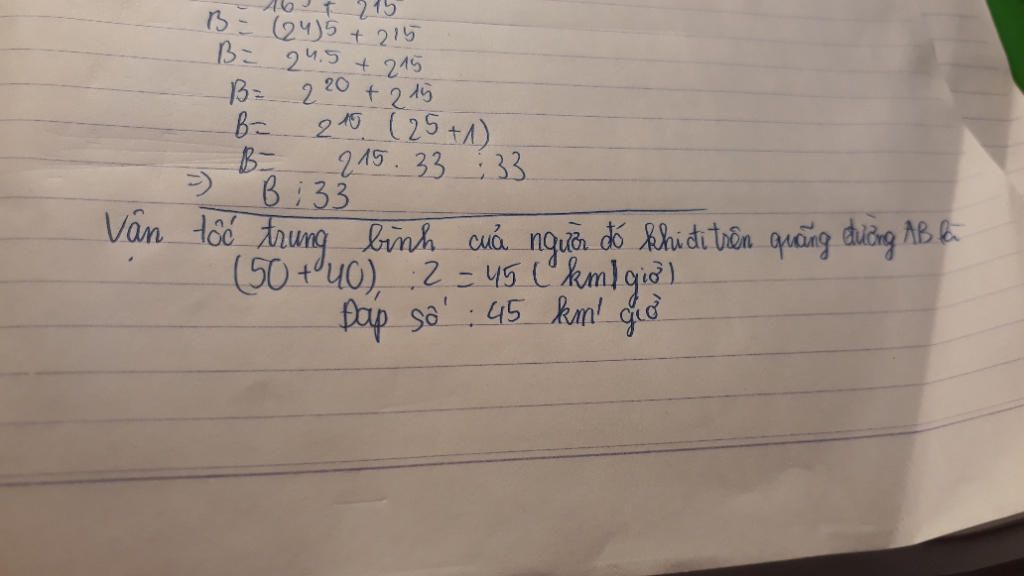 16⁵ + 2¹⁵
B = (2⁴)5 + 2¹⁵
B = 2⁴·⁵ + 2¹⁵
B = 2²⁰ + 2¹⁵
B = 2¹⁵. (2⁵+1)
B = 2¹⁵ . 33 ⋮ 33
=) B ⋮ 33
Vận tốc trung bình của người đó khi đi trên quãng đường AB là
(50 + 40) : 2 = 45 ( km/giờ)
Đáp số : 45 km/ giờ